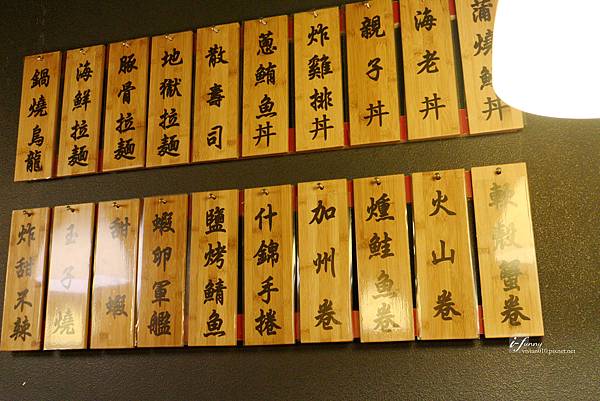 鍋燒烏龍
海鮮拉麵
豚骨拉麵
地獄拉麵
散壽司
蔥鮪魚丼
炸雞排丼
親子丼
海老丼
蒲燒
炸甜不辣
玉子燒
甜蝦
蝦卵軍艦
鹽烤鯖魚
什錦手捲
加州卷
燻鮭魚卷
火山卷
軟殼蟹卷
i-funny